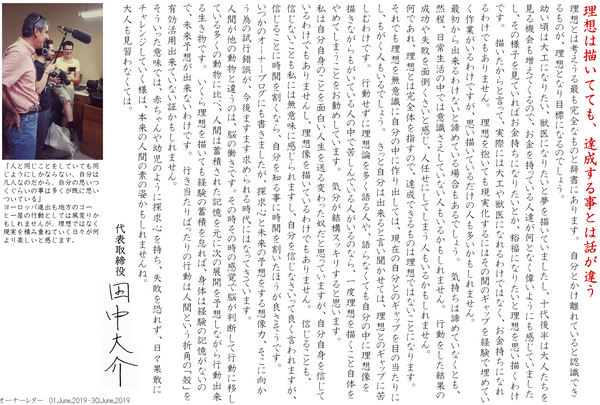 理想は描いてても、達成する事とは話が違う
理想とは考えうる最も完全なものと辞書にあります。自分とかけ離れていると認識でき
るものが、理想となり目標になるのでしょう。
幼い頃は大工になりたい、獣医になりたいと夢を描いていましたし、十代後半は大人たちを
見る機会も増えてくるので、お金を持てる人達が何となく偉いようにも感じていました
し、その様子を見ていればお金持ちになりたいとか、裕福になりたいと理想を思い描くわけ
です。描いたからと言って、実際には大工や獣医になれるわけではなく、お金持ちになれ
るわけでもありません。理想を抱いても現実化するにはその間のギャップを経験で埋めてい
く作業がいるわけですが、思い描いているだけの人も多かもしれません。
最初から出来るわけないと諦めている場合もあるでしょう。気持ちは諦めていなくとも、
然程、日常生活の中では意識さえしていない人もいるかもしれません。行動をした結果の
成功や失敗を面倒くさいと感じ、人任せにしてしまう人もいるかもしれません。
何であれ、理想とは完全体を指すので、達成できるものは理想ではないことになります。
それでも理想を無意識に自分の中に作り出しては、現在の自分とのギャップを目の当たりに
し、もがく人もいるでしょう。きっと自分は出来ると言い聞かせては、理想とのギャップに苦
しむわけです。行動せずに理想論を多く語る人や、語らなくても自分の中に理想像を
描きながらもがいている人の中で苦しんでいる人がいるのなら、一度理想を描くこと自体を
やめてしまうことをお勧めしています。気分が結構スッキリすると思います。
私は自分自身のことを面白い人生を送る変わった奴だと思っていますが、自分自身を信じて
いるわけでもありませんし、理想像を描いているわけでもありません。信じることも、
信じないことも私には無意味に感じられますし、自分を信じなさいって良く言われますが、
信じることに時間を割くなら、自分を知る事に時間を割いたほうが良さそうです。
いつかのオーナーブログにも書きましたが、探求心と未来の予想をする想像力、そこに向か
う為の試行錯誤が、今後ますます求められる時代にはなってきています。
人間が他の動物と違うのは、脳の働きです。その時その時の感覚で脳が判断して行動に移し
ている多くの動物に比べ、人間は蓄積された記憶を元に次の展開を予想しながら行動出来
る生き物です。いくら理想を描いても経験の蓄積を怠れば、身体は経験の記憶がないの
で、未来予想が出来ないわけです。行き当たりばったりの行動は人間という折角の「殻」を
有効活用出来ていない証かもしれません。
そういった意味では、赤ちゃんや幼児のように探求心を持ち、失敗を恐れず、日々果敢に
チャレンジしていく様は、本来の人間の素の姿かもしれませんね。
大人も見習わなくては。
代表取締役 田中大介
「人と同じことをしていても同
じようにしかならない、自分は
凡人なのだから、自分の思いつ
くぐらいの事は多くが既に思い
ついている」
ヨーロッパ進出も地方のコー
ヒー屋の行動としては風変りか
もしれませんが、理想ではなく
現実を積み重ねていく日々が何
より楽しいと感じます。
オーナーレター 01.June,2019-30.June,2019